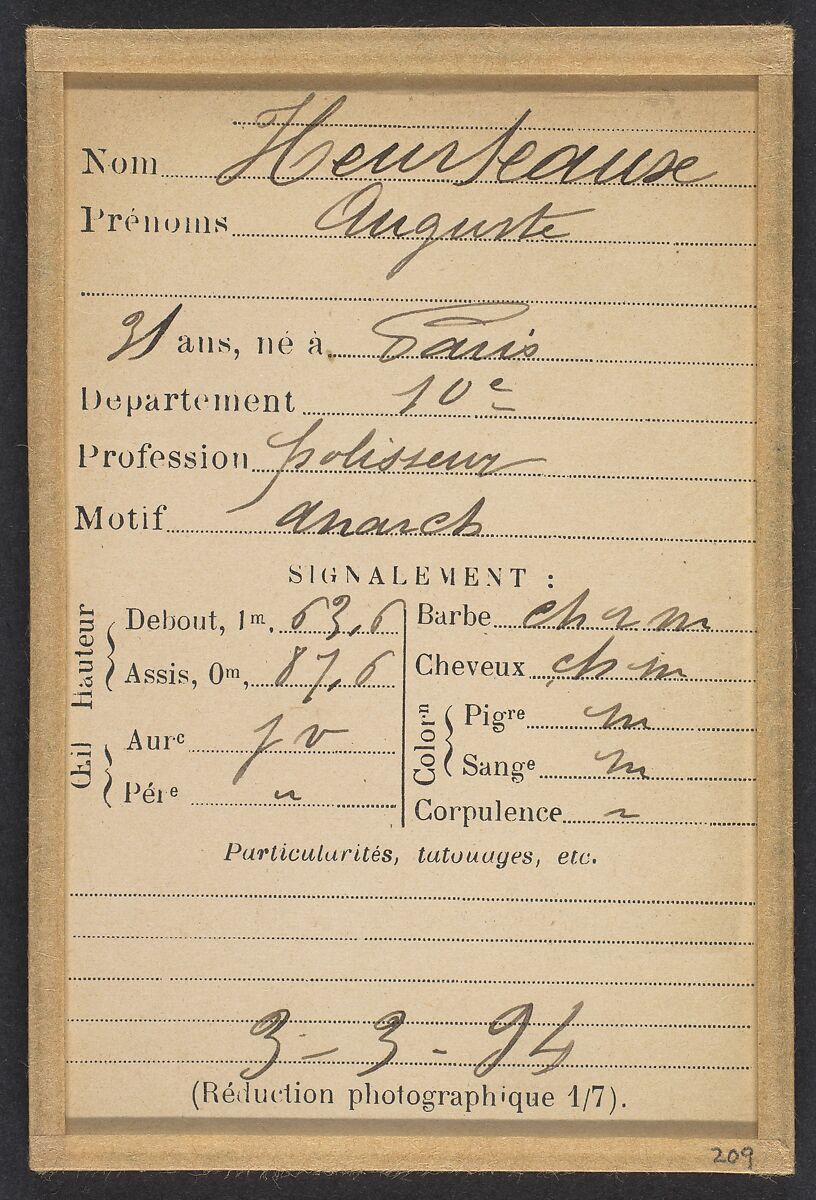 Nom Heurteaux
Prénoms Auguste
31 ans, né à Paris
Departement 10e
Profession polisseur
Motif anarch
SIGNALEMENT :
Hauteur
Debout, 1m, 63,6
Assis, 0m, 87,6
Œil
Aurc j v
Pére
Barbe ch r m
Cheveux ch m
Colorn
Pigre m
Sange m
Corpulence
Particularités, tatouages, etc.
3-3-94
(Réduction photographique 1/7).
209